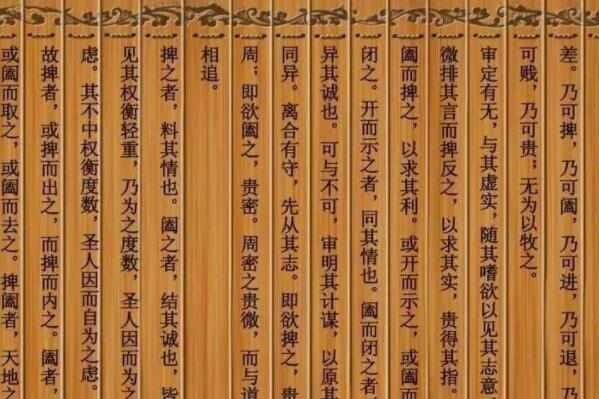 差。乃可捭，乃可阖，乃可进，乃可退，乃
可贱，乃可贵；无为以牧之。
审定有无，与其虚实，随其嗜欲以见其志意，
微排其言而捭反之，以求其实，贵得其指。
阖而捭之，以求其利。或开而示之，或阖
闭之。开而示之者，同其情也。阖而闭之者，
异其诚也。可与不可，审明其计谋，以原其
同异。离合有守，先从其志。即欲捭之，贵
周；即欲阖之，贵密。周密之贵微，而与道
相追。
捭之者，料其情也。阖之者，结其诚也，皆
见其权衡轻重，乃为之度数，圣人因而为之
虑。其不中权衡度数，圣人因而自为之虑。
故捭者，或捭而出之，而捭而内之。阖者，
或阖而取之，或阖而去之。捭阖者，天地之